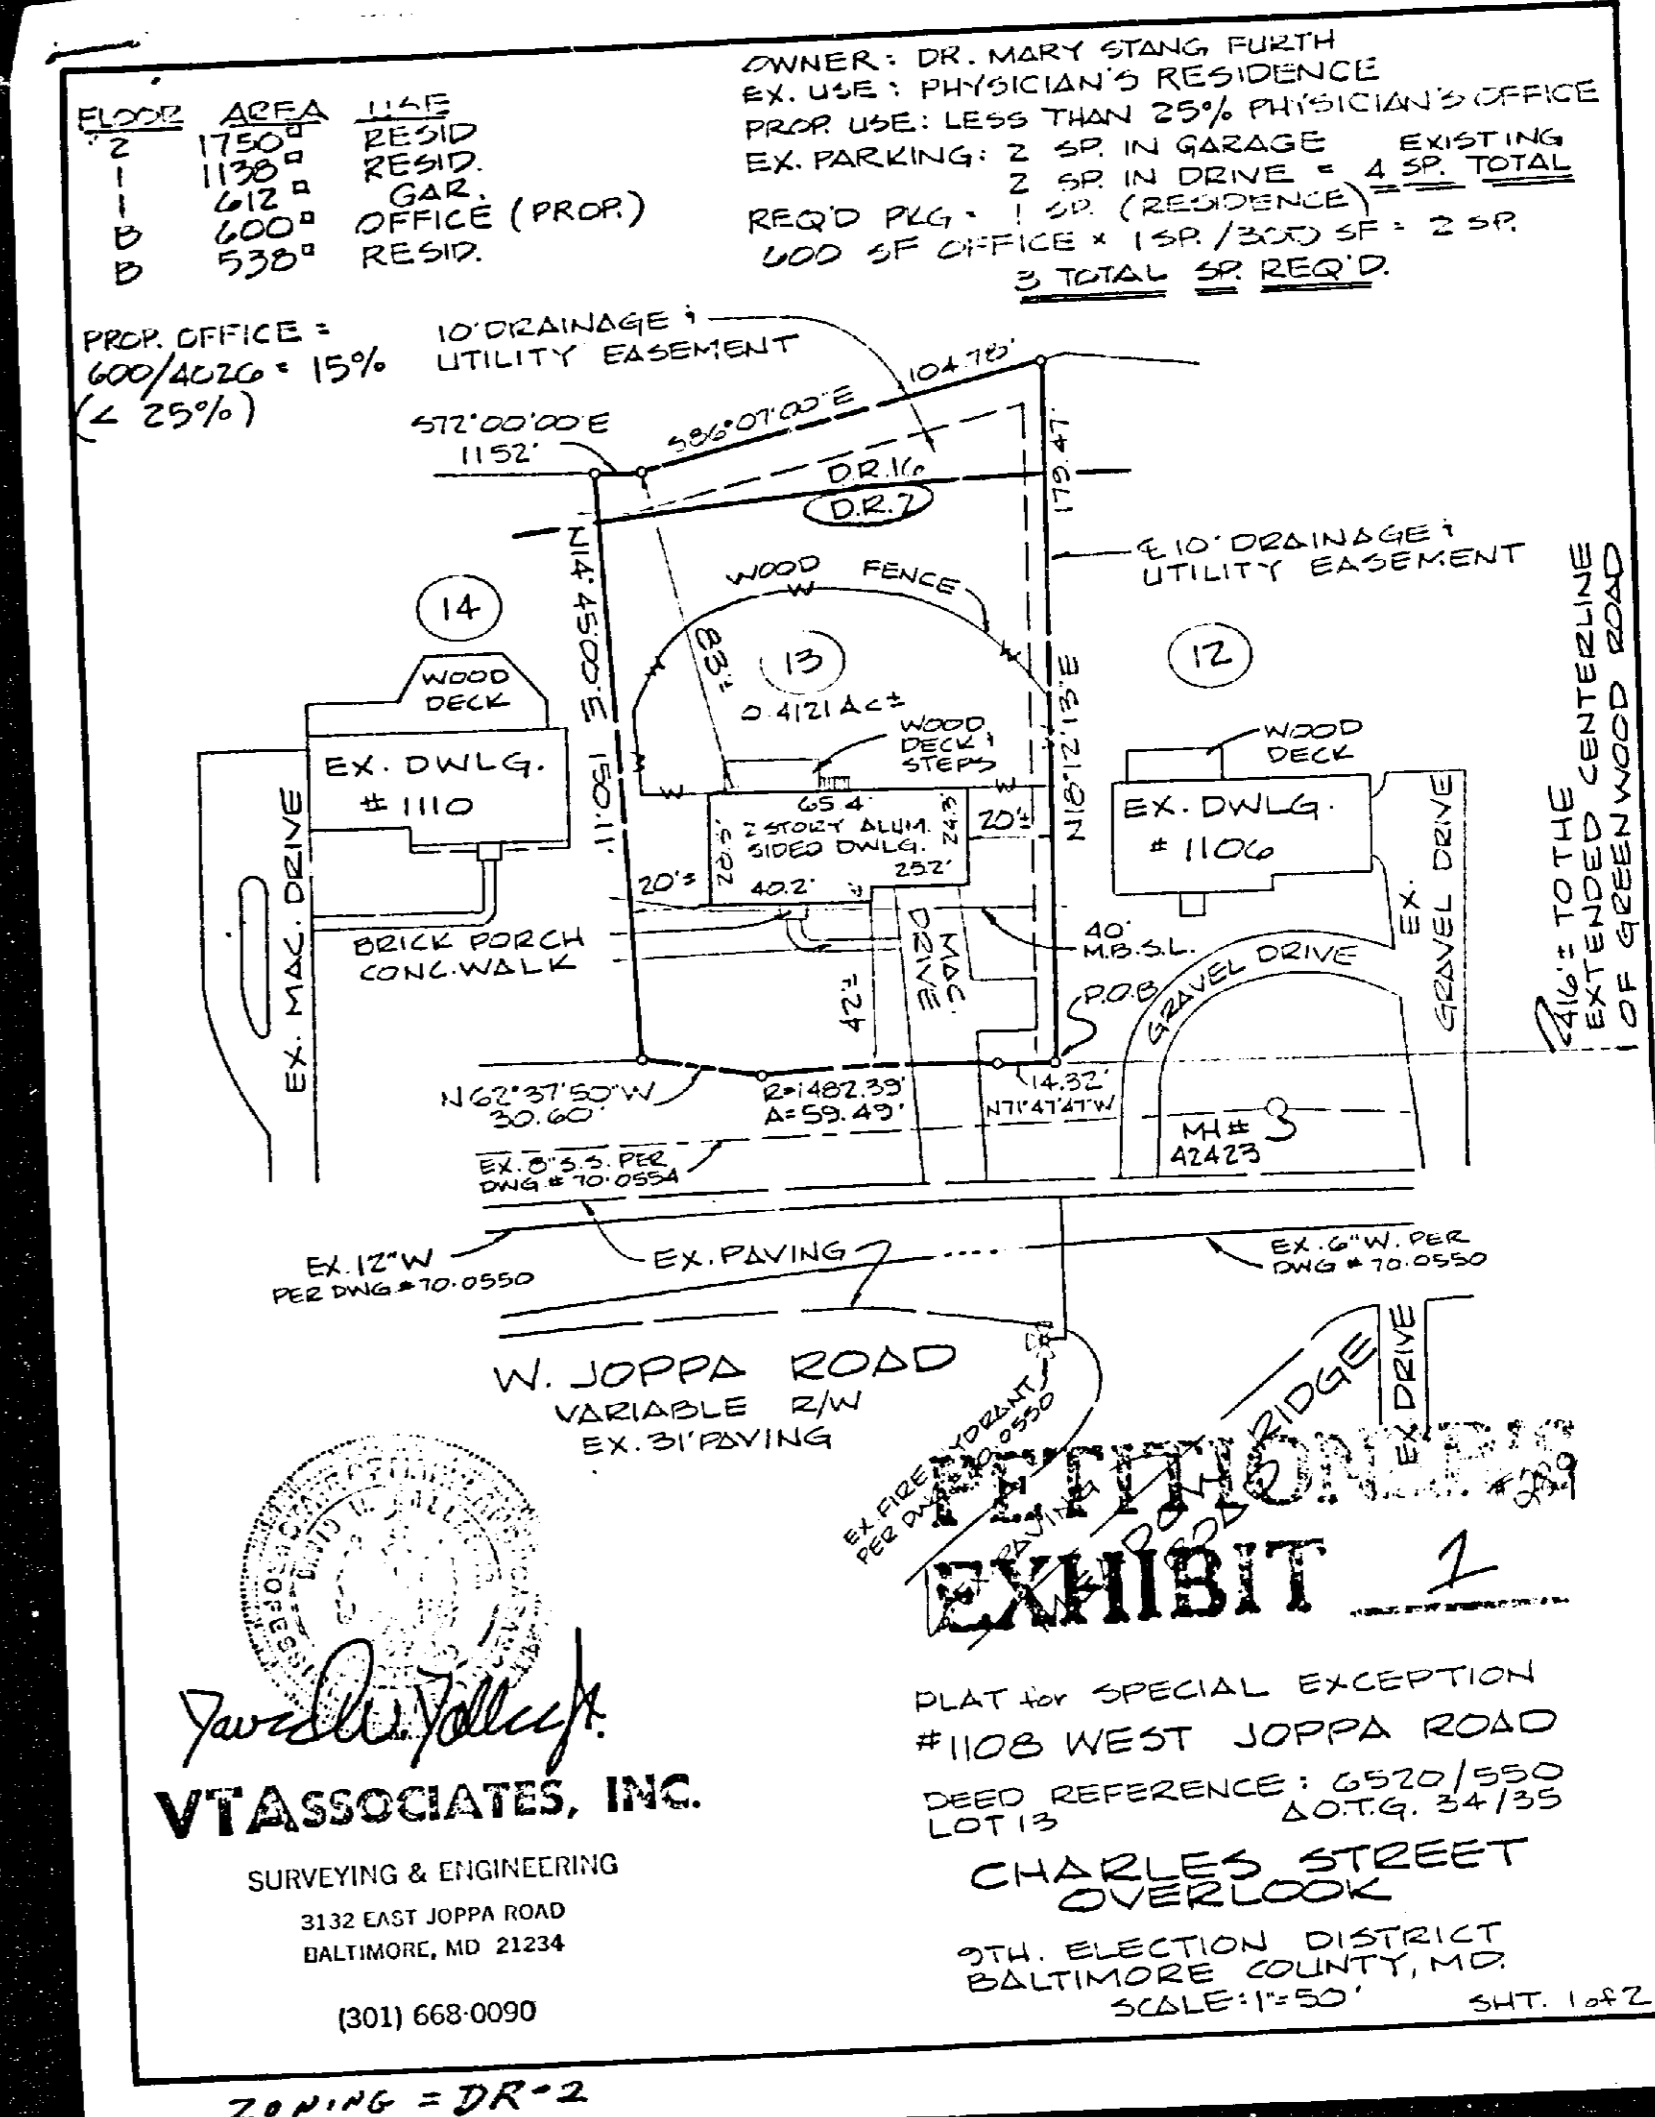 FLOOR AREA USE
2 1750 RESID
1 1138 RESID.
1 612 GAR.
B 600 OFFICE (PROP.)
B 538 RESID.
PROP. OFFICE =
600/4026 = 15%
(< 25%)
OWNER: DR. MARY STANG FURTH
EX. USE: PHYSICIAN'S RESIDENCE
PROP. USE: LESS THAN 25% PHYSICIAN'S OFFICE
EX. PARKING: 2 SP. IN GARAGE EXISTING
2 SP. IN DRIVE = 4 SP. TOTAL
REQ'D PKG = 1 SP. (RESIDENCE)
600 SF OFFICE x 1 SP./300 SF = 2 SP.
3 TOTAL SP. REQ'D.
10' DRAINAGE &
UTILITY EASEMENT
S72°00'00"E
11.52'
S86°07'00"E 104.78'
179.47'
D.R.16
D.R.2
₵ 10' DRAINAGE &
UTILITY EASEMENT
N14°45'00"E 150.11'
N18°12'13"E
WOOD FENCE
W W W W W
83'±
14
13
12
0.4121 Ac±
WOOD
DECK
WOOD
DECK &
STEPS
WOOD
DECK
EX. DWLG.
# 1110
65.4'
2 STORY ALUM.
SIDED DWLG.
28.5'
24.3'
25.2'
40.2'
20'±
20'±
EX. DWLG.
# 1106
EX. MAC. DRIVE
EX. GRAVEL DRIVE
GRAVEL DRIVE
BRICK PORCH
CONC. WALK
MAC. DRIVE
42'±
40'
M.B.S.L.
P.O.B.
416'± TO THE
EXTENDED CENTERLINE
OF GREENWOOD ROAD
N62°37'50"W
30.60'
R=1482.39'
A=59.49'
14.32'
N71°47'47"W
MH #
42423
EX. 8" S.S. PER
DWG. # 70-0554
EX. 12" W
PER DWG. # 70-0550
EX. PAVING
EX. 6" W. PER
DWG # 70-0550
W. JOPPA ROAD
VARIABLE R/W
EX. 31' PAVING
EX. FIRE HYDRANT
PER DWG 70-0550
RIDGE
EX DRIVE
PETITIONER'S
EXHIBIT 1
VT ASSOCIATES, INC.
SURVEYING & ENGINEERING
3132 EAST JOPPA ROAD
BALTIMORE, MD 21234
(301) 668-0090
PLAT for SPECIAL EXCEPTION
#1108 WEST JOPPA ROAD
DEED REFERENCE: 6520/550
LOT 13 O.T.G. 34/35
CHARLES STREET
OVERLOOK
9TH. ELECTION DISTRICT
BALTIMORE COUNTY, MD.
SCALE: 1"=50'
SHT. 1 of 2
ZONING = DR-2